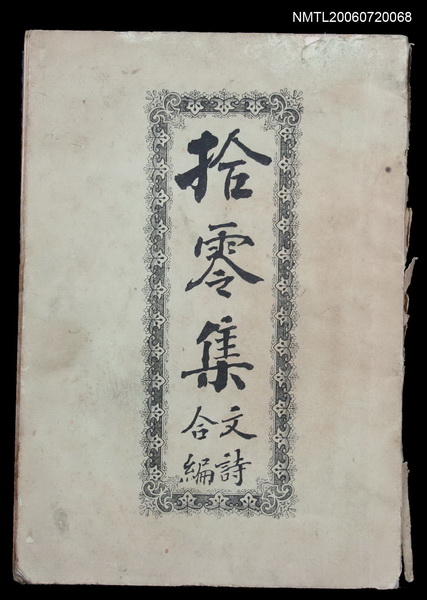 NMTL20060720068
拾零集
文詩
合編